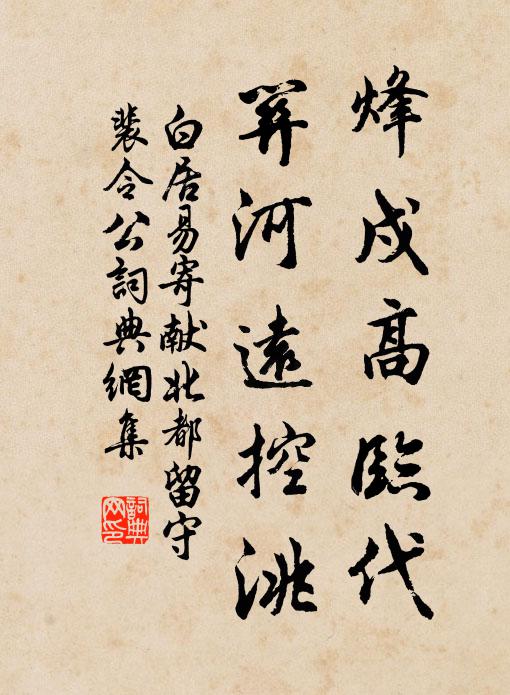 烽戍高臨代
關河遠控洮
白居易寄献北都留守
裴令公詞典網集
詞典
网印